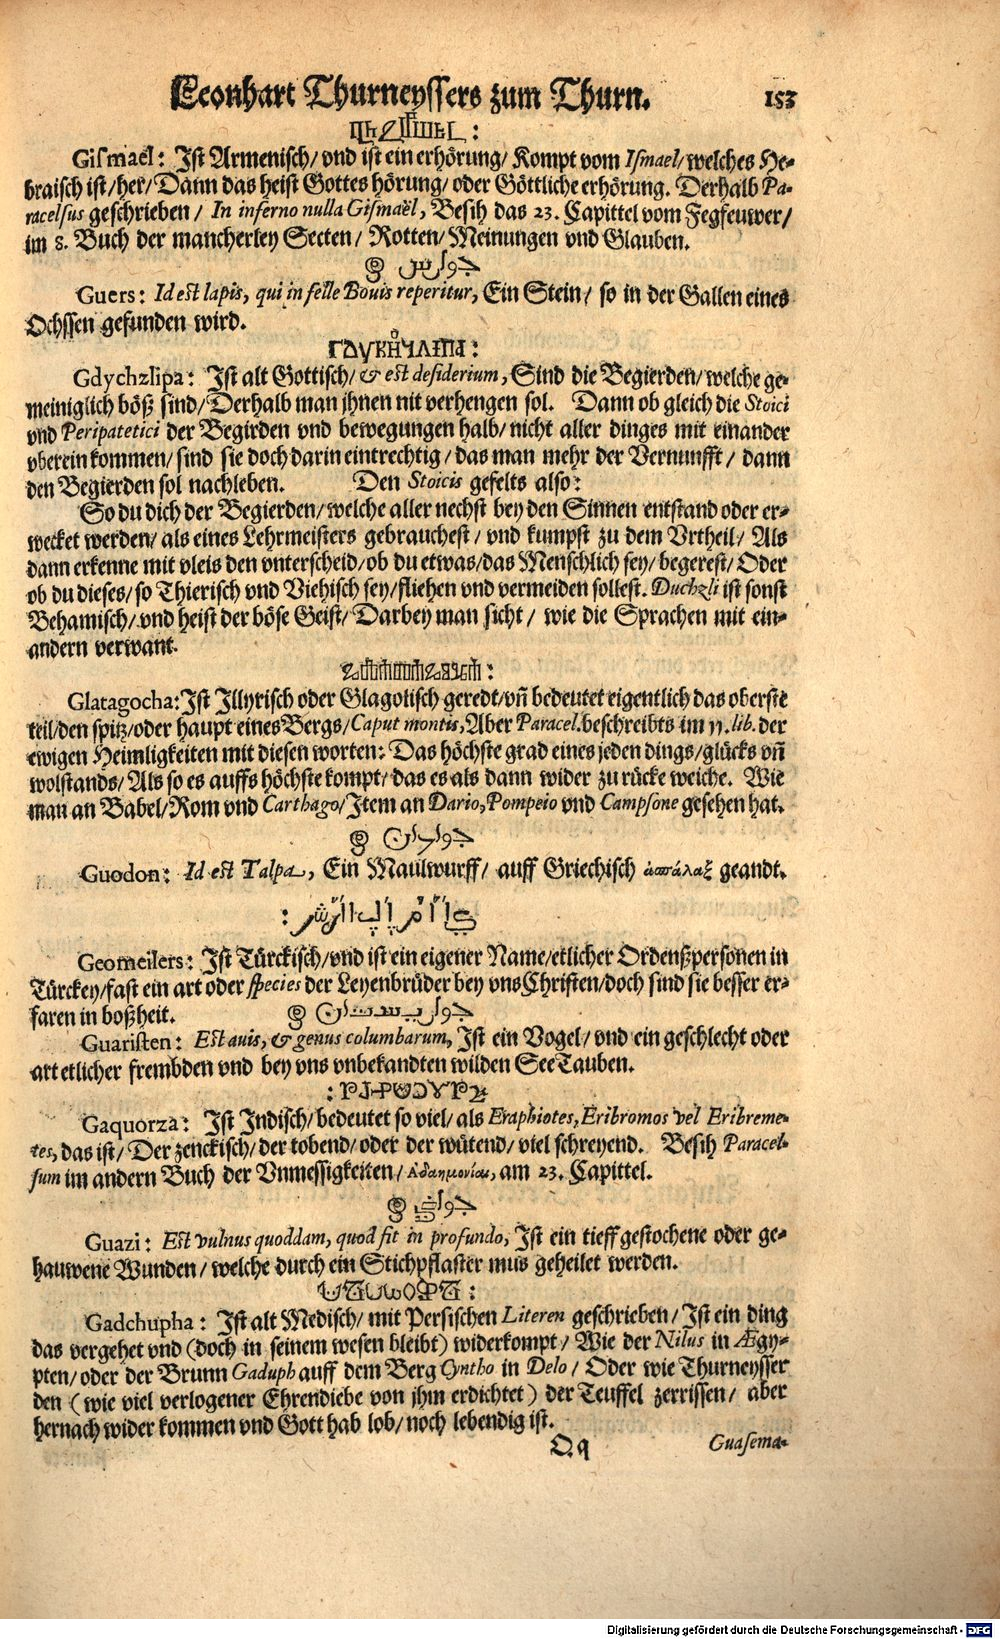 Leonhart Thurneyssers zum Thurn. 153
Gismaël: Ist Armenisch/ vnd ist ein erhörung/ Kompt vom Ismael/ welches He-
braisch ist/ her/ Dann das heist Gottes hörung/ oder Göttliche erhörung. Derhalb Pa-
racelsus geschrieben/ In inferno nulla Gismaël, Besih das 23. Capittel vom Fegfeuwer/
im 8. Buch der mancherley Secten/ Rotten/ Meinungen vnd Glauben.
Guers: Id est lapis, qui in felle Bouis reperitur, Ein Stein/ so in der Gallen eines
Ochssen gefunden wird.
Gdychzlipa: Ist alt Gottisch/ & est desiderium, Sind die Begierden/ welche ge-
meiniglich böß sind/ Derhalb man jhnen nit verhengen sol. Dann ob gleich die Stoici
vnd Peripatetici der Begirden vnd bewegungen halb/ nicht aller dinges mit einander
vberein kommen/ sind sie doch darin eintrechtig/ das man mehr der Vernunfft/ dann
den Begierden sol nachleben. Den Stoicis gefelts also:
So du dich der Begierden/ welche aller nechst bey den Sinnen entstand oder er-
wecket werden/ als eines Lehrmeisters gebrauchest/ vnd kumpst zu dem Vrtheil/ Als
dann erkenne mit vleis den vnterscheid/ ob du etwas/ das Menschlich sey/ begerest/ Oder
ob du dieses/ so Thierisch vnd Viehisch sey/ fliehen vnd vermeiden sollest. Duchzli ist sonst
Behamisch/ vnd heist der böse Geist/ Darbey man sicht/ wie die Sprachen mit ein-
andern verwant.
Glatagocha: Ist Illyrisch oder Glagolisch geredt/ vñ bedeutet eigentlich das oberste
teil/ den spitz/ oder haupt eines Bergs/ Caput montis, Aber Paracel. beschreibts im 11. lib. der
ewigen Heimligkeiten mit diesen worten: Das höchste grad eines jeden dings/ glücks vñ
wolstands/ Als so es auffs höchste kompt/ das es als dann wider zu rücke weiche. Wie
man an Babel/ Rom vnd Carthago/ Item an Dario, Pompeio vnd Campsone gesehen hat.
Guodon: Id est Talpa, Ein Maulwurff/ auff Griechisch ἀσπάλαξ geandt.
Geomeilers: Ist Türckisch/ vnd ist ein eigener Name/ etlicher Ordenßpersonen in
Türckey/ fast ein art oder species der Leyenbrüder bey vns Christen/ doch sind sie besser er-
faren in boßheit.
Guaristen: Est auis, & genus columbarum, Ist ein Vogel/ vnd ein geschlecht oder
art etlicher frembden vnd bey vns vnbekandten wilden SeeTauben.
Gaquorza: Ist Indisch/ bedeutet so viel/ als Eraphiotes, Eribromos vel Eribreme-
tes, das ist/ Der zenckisch/ der tobend/ oder der wütend/ viel schreyend. Besih Paracel-
sum im andern Buch der Vnmessigkeiten/ am 23. Capittel.
Guazi: Est vulnus quoddam, quod fit in profundo, Ist ein tieff gestochene oder ge-
hauwene Wunden/ welche durch ein Stichpflaster mus geheilet werden.
Gadchupha: Ist alt Medisch/ mit Persischen Literen geschrieben/ Ist ein ding
das vergehet vnd (doch in seinem wesen bleibt) widerkompt/ Wie der Nilus in Ægy-
pten/ oder der Brunn Gaduph auff dem Berg Cyntho in Delo/ Oder wie Thurneysser
den (wie viel verlogener Ehrendiebe von jhm erdichtet) der Teuffel zerrissen/ aber
hernach wider kommen vnd Gott hab lob/ noch lebendig ist.
Q q Guasema-
Digitalisierung gefördert durch die Deutsche Forschungsgemeinschaft - DFG